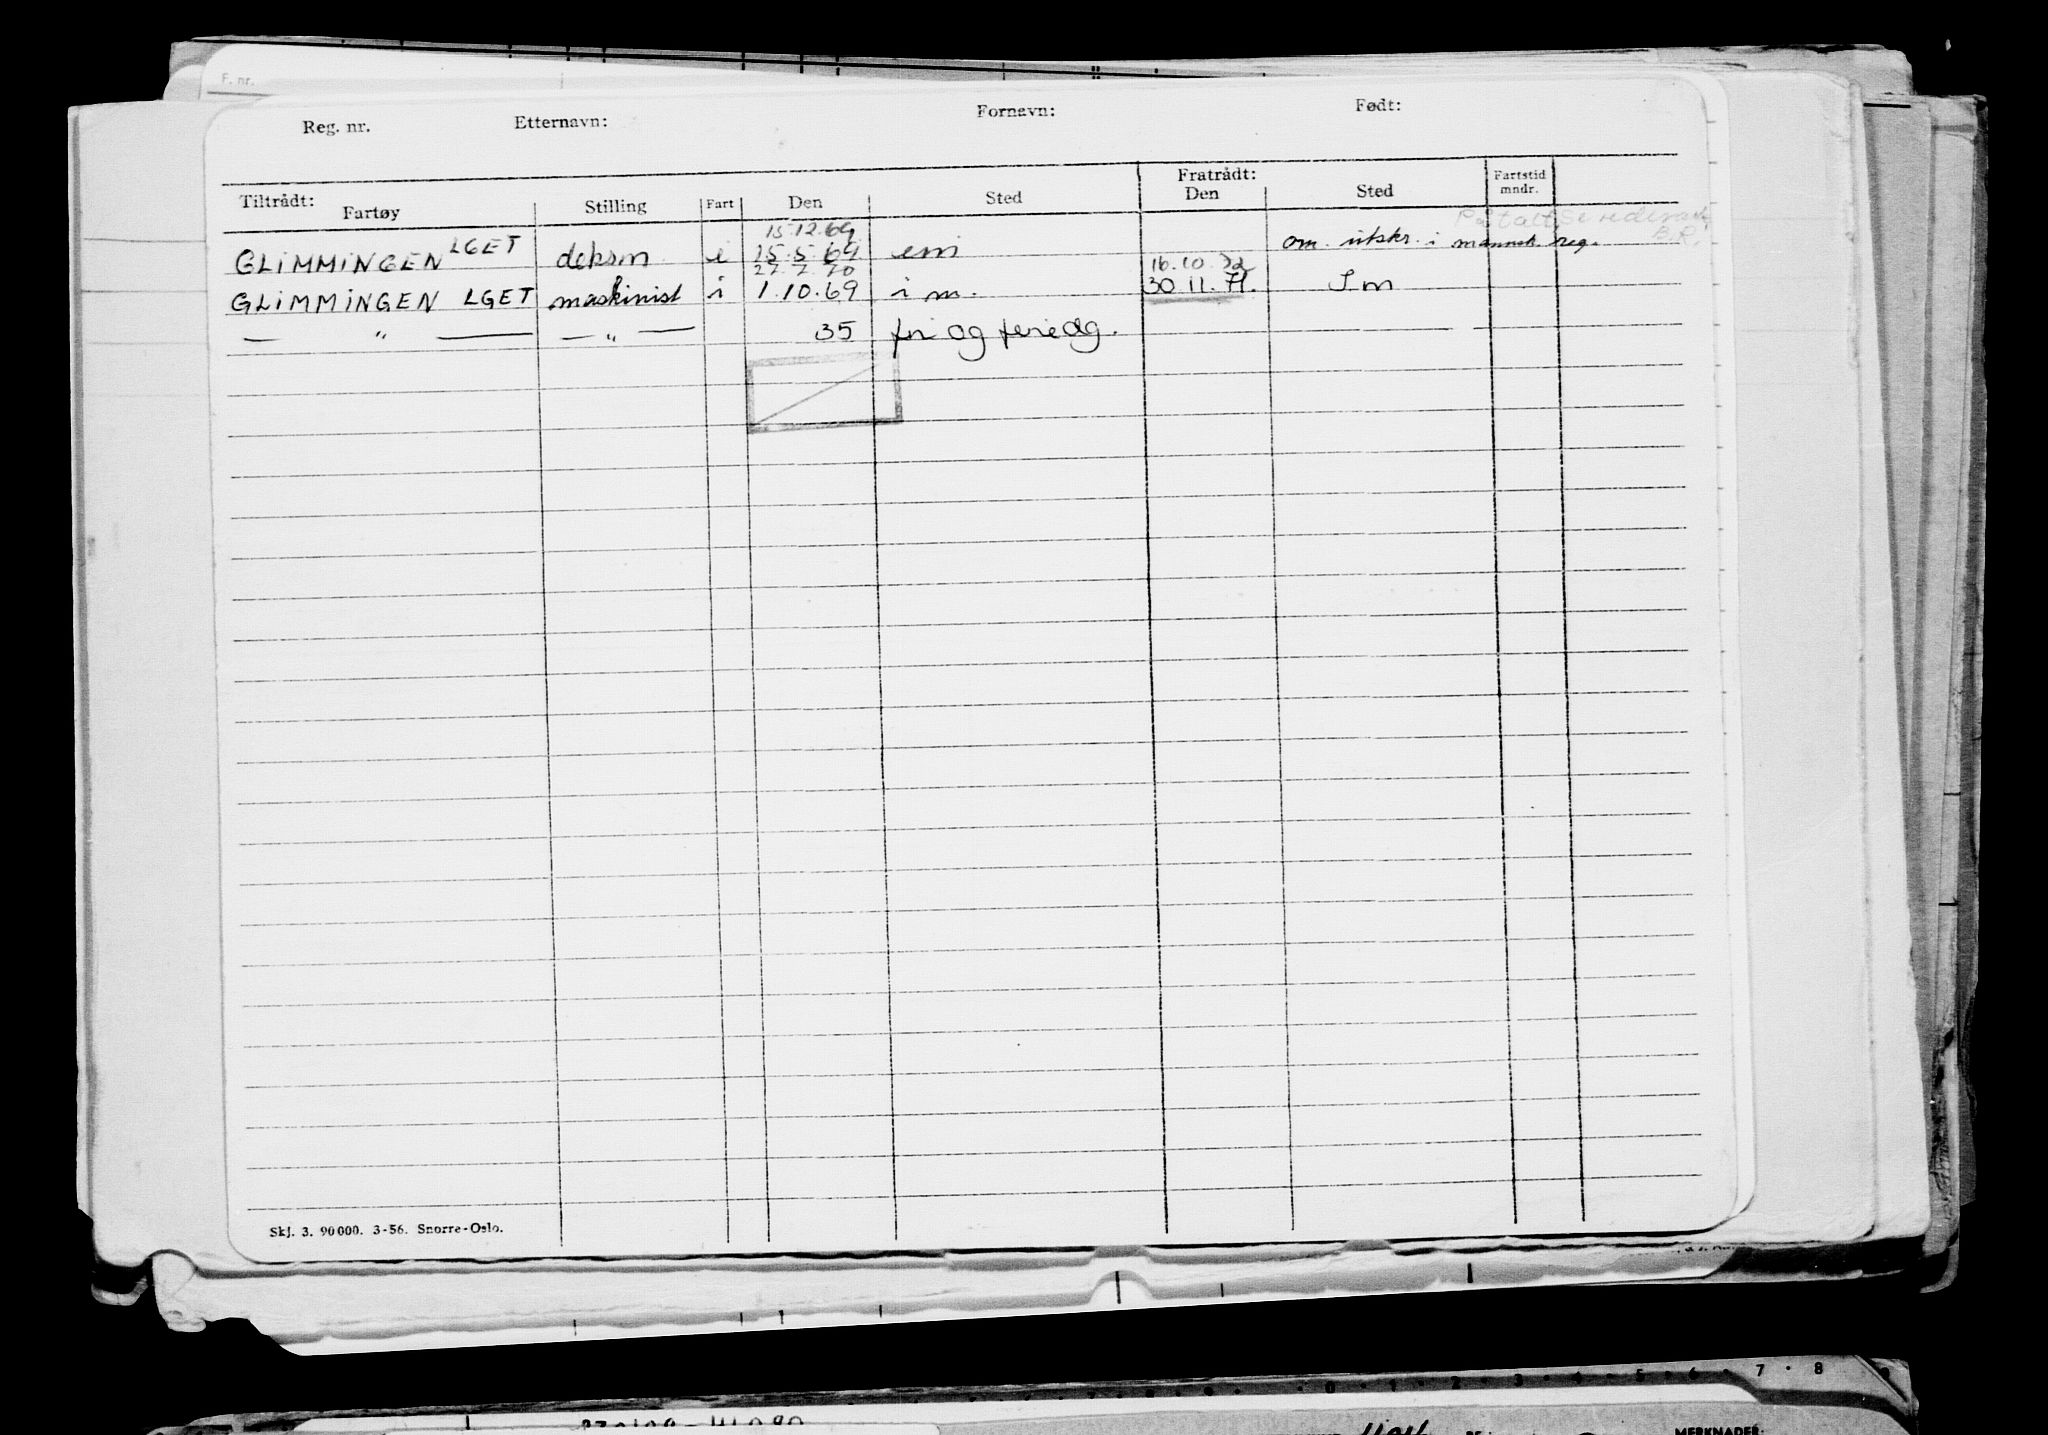 F. nr.
Reg. nr. Etternavn: Fornavn: Født:
Tiltrådt: Fratrådt:
Fartøy Stilling Fart Den Sted Den Sted Fartstid mndr.
15.12.69
GLIMMINGEN LGET deksm i 15.5.69 em om. utskr. i mannsk. reg.
B.R.
27.7.70 16.10.72
GLIMMINGEN LGET maskinist i 1.10.69 i m. 30.11.71. I m
— " — — " — 35 fri og feriedg.
Skj. 3. 90000. 3-56. Snorre-Oslo.
0 · 1 · 2 · 3 · 4 · 5 · 6 · 7 · 8
MERKNADER: